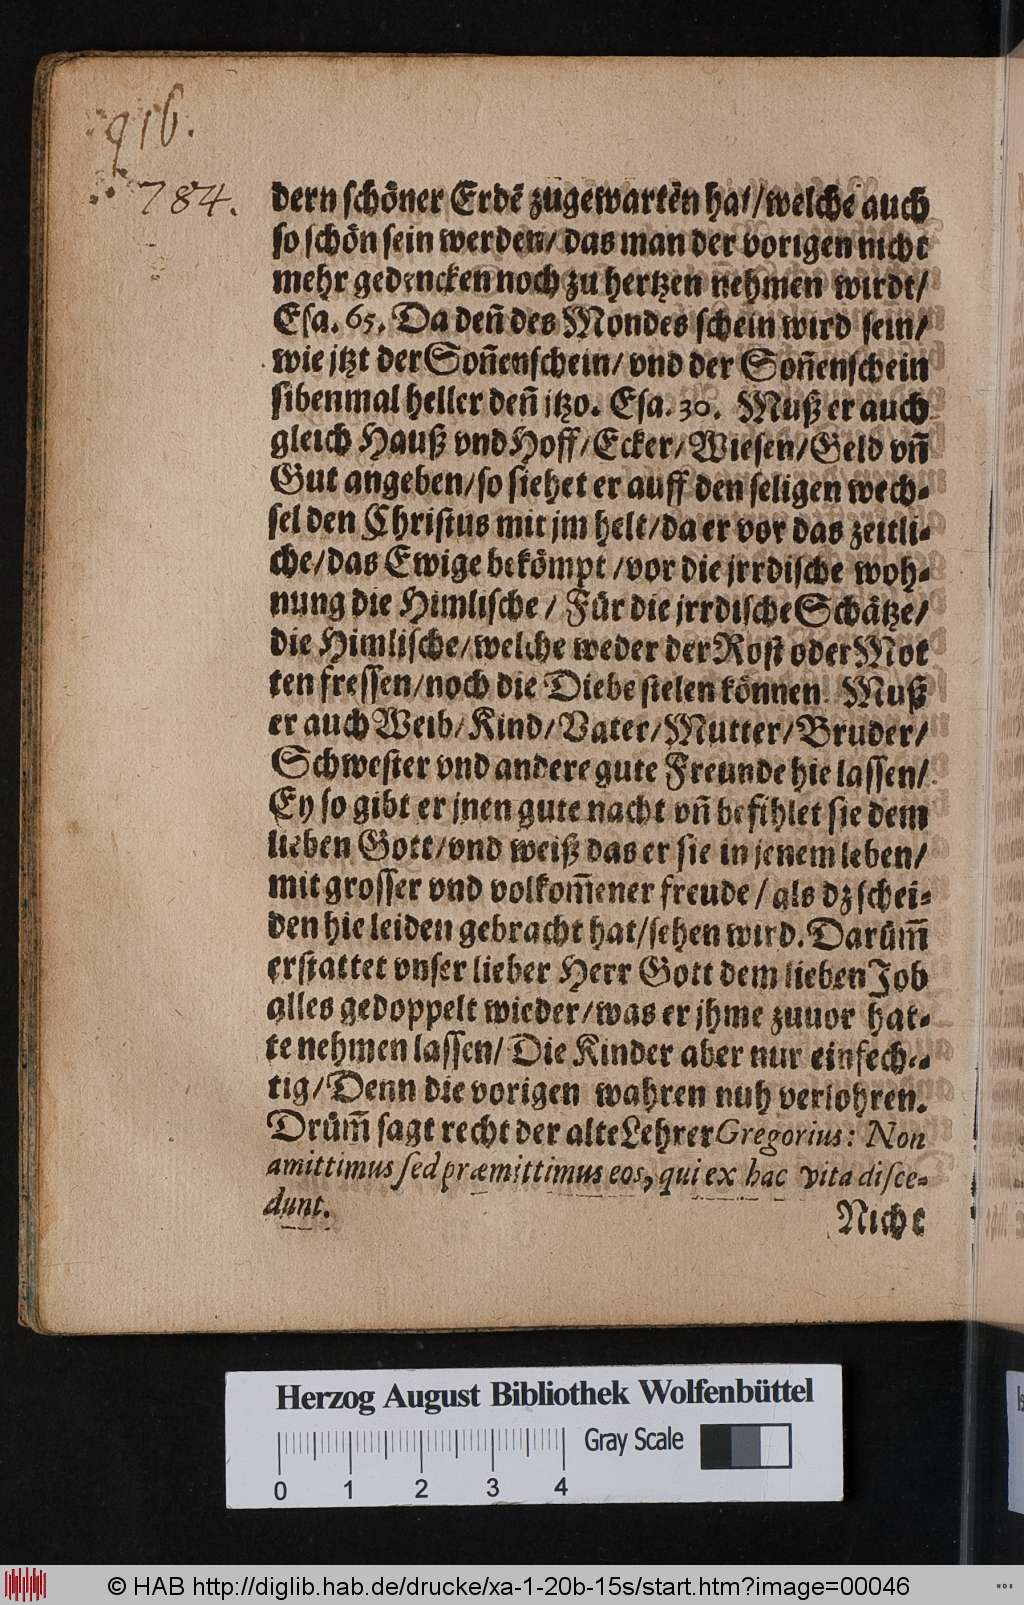 916.
784.
dern schöner Erdē zugewarten hat/welche auch
so schön sein werden/ das man der vorigen nicht
mehr gedencken noch zu hertzen nehmen wirdt/
Esa. 65. Da deñ des Mondes schein wird sein/
wie jtzt der Soñenschein/ vnd der Soñenschein
sibenmal heller deñ jtzo. Esa. 30. Muß er auch
gleich Hauß vnd Hoff/Ecker/Wiesen/Geld vñ
Gut angeben/so siehet er auff den seligen wech-
sel den Christus mit jm helt/da er vor das zeitli-
che/das Ewige bekömpt /vor die jrrdische woh-
nung die Himlische / Für die jrrdische Schätze/
die Himlische/welche weder der Rost oder Mot
ten fressen/noch die Diebe stelen können. Muß
er auch Weib/Kind/Vater/Mutter/Bruder/
Schwester vnd andere gute Freunde hie lassen/
Ey so gibt er jnen gute nacht vñ befihlet sie dem
lieben Gott/vnd weiß das er sie in jenem leben/
mit grosser vnd volkom̄ener freude / als dz schei-
den hie leiden gebracht hat/sehen wird. Darüm̄
erstattet vnser lieber Herr Gott dem lieben Job
alles gedoppelt wieder/was er jhme zuuor hat-
te nehmen lassen/ Die Kinder aber nur einfech-
tig/Denn die vorigen wahren nuh verlohren.
Drüm̄ sagt recht der alte Lehrer Gregorius: Non
amittimus sed præmittimus eos, qui ex hac vita disce-
dunt.
Nicht
Herzog August Bibliothek Wolfenbüttel
Gray Scale
0 1 2 3 4
© HAB http://diglib.hab.de/drucke/xa-1-20b-15s/start.htm?image=00046